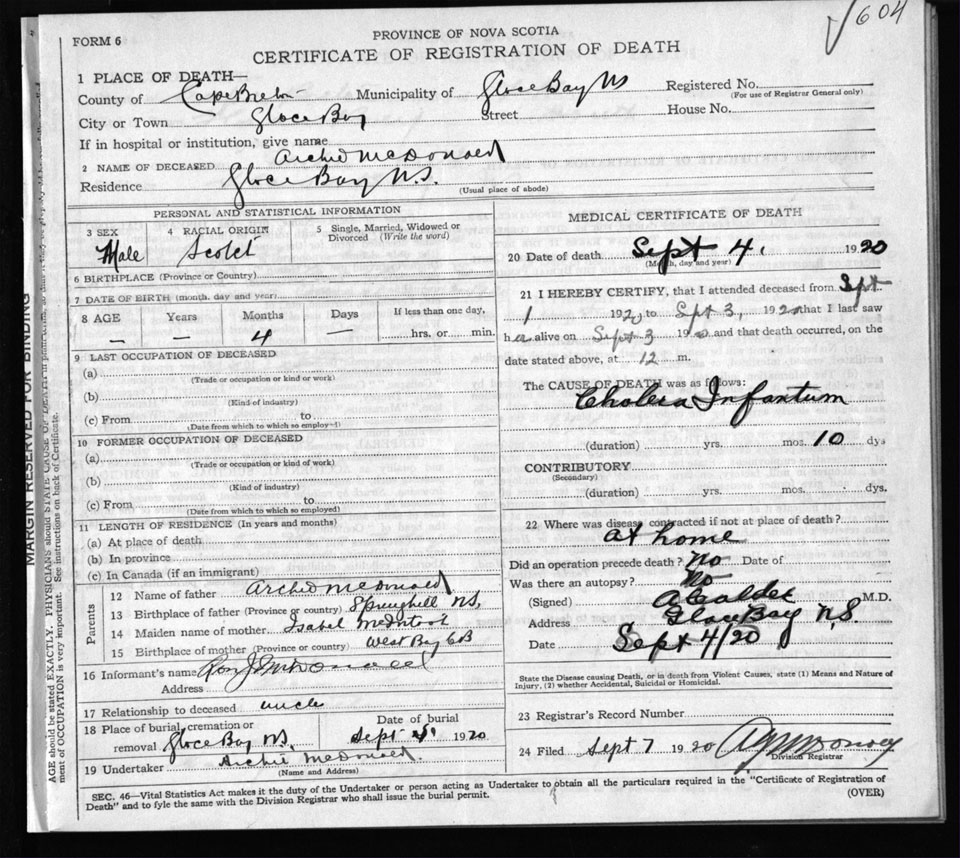 604
FORM 6
PROVINCE OF NOVA SCOTIA
CERTIFICATE OF REGISTRATION OF DEATH
1 PLACE OF DEATH—
County of Cape Breton Municipality of Glace Bay NS Registered No.
(For use of Registrar General only)
City or Town Glace Bay Street House No.
If in hospital or institution, give name
2 NAME OF DECEASED Archie McDonald
Residence Glace Bay N.S.
(Usual place of abode)
PERSONAL AND STATISTICAL INFORMATION
3 SEX 4 RACIAL ORIGIN 5 Single, Married, Widowed or Divorced (Write the word)
Male Scotch
6 BIRTHPLACE (Province or Country)
7 DATE OF BIRTH (month, day and year)
8 AGE Years Months Days If less than one day,
– – 4 – hrs. or min.
9 LAST OCCUPATION OF DECEASED
(a)
(Trade or occupation or kind or work)
(b)
(Kind of industry)
(c) From to
(Date from which to which so employed)
10 FORMER OCCUPATION OF DECEASED
(a)
(Trade or occupation or kind of work)
(b)
(Kind of industry)
(c) From to
(Date from which to which so employed)
11 LENGTH OF RESIDENCE (In years and months)
(a) At place of death
(b) In province
(c) In Canada (if an immigrant)
Parents
12 Name of father Archie McDonald
13 Birthplace of father (Province or country) Springhill NS,
14 Maiden name of mother Isabel McIntosh
15 Birthplace of mother (Province or country) West Bay CB
16 Informant's name
Address
17 Relationship to deceased uncle
18 Place of burial, cremation or removal Glace Bay NS. Date of burial Sept 1920
19 Undertaker Archie McDonald.
(Name and Address)
MEDICAL CERTIFICATE OF DEATH
20 Date of death Sept 4, 1920
(Month, day and year)
21 I HEREBY CERTIFY, that I attended deceased from Sept
1 1920 to Sept 3, 1920 that I last saw
h alive on Sept 3 1920 and that death occurred, on the
date stated above, at 12 m.
The CAUSE OF DEATH was as follows:
Cholera Infantum
(duration) yrs. mos. 10 dys
CONTRIBUTORY
(Secondary)
(duration) yrs. mos. dys.
22 Where was disease contracted if not at place of death?
at home
Did an operation precede death? No Date of
Was there an autopsy? No
(Signed) M.D.
Address Glace Bay N.S.
Date Sept 4/20
State the Disease causing Death, or in death from Violent Causes, state (1) Means and Nature of
Injury, (2) whether Accidental, Suicidal or Homicidal.
23 Registrar's Record Number
24 Filed Sept 7 1920
Division Registrar
SEC. 46—Vital Statistics Act makes it the duty of the Undertaker or person acting as Undertaker to obtain all the particulars required in the "Certificate of Registration of
Death" and to fyle the same with the Division Registrar who shall issue the burial permit.
(OVER)
MARGIN RESERVED FOR BINDING
AGE should be stated EXACTLY. PHYSICIANS should STATE CAUSE OF DEATH in plain
ment of OCCUPATION is very important. See instructions on back of Certificate.